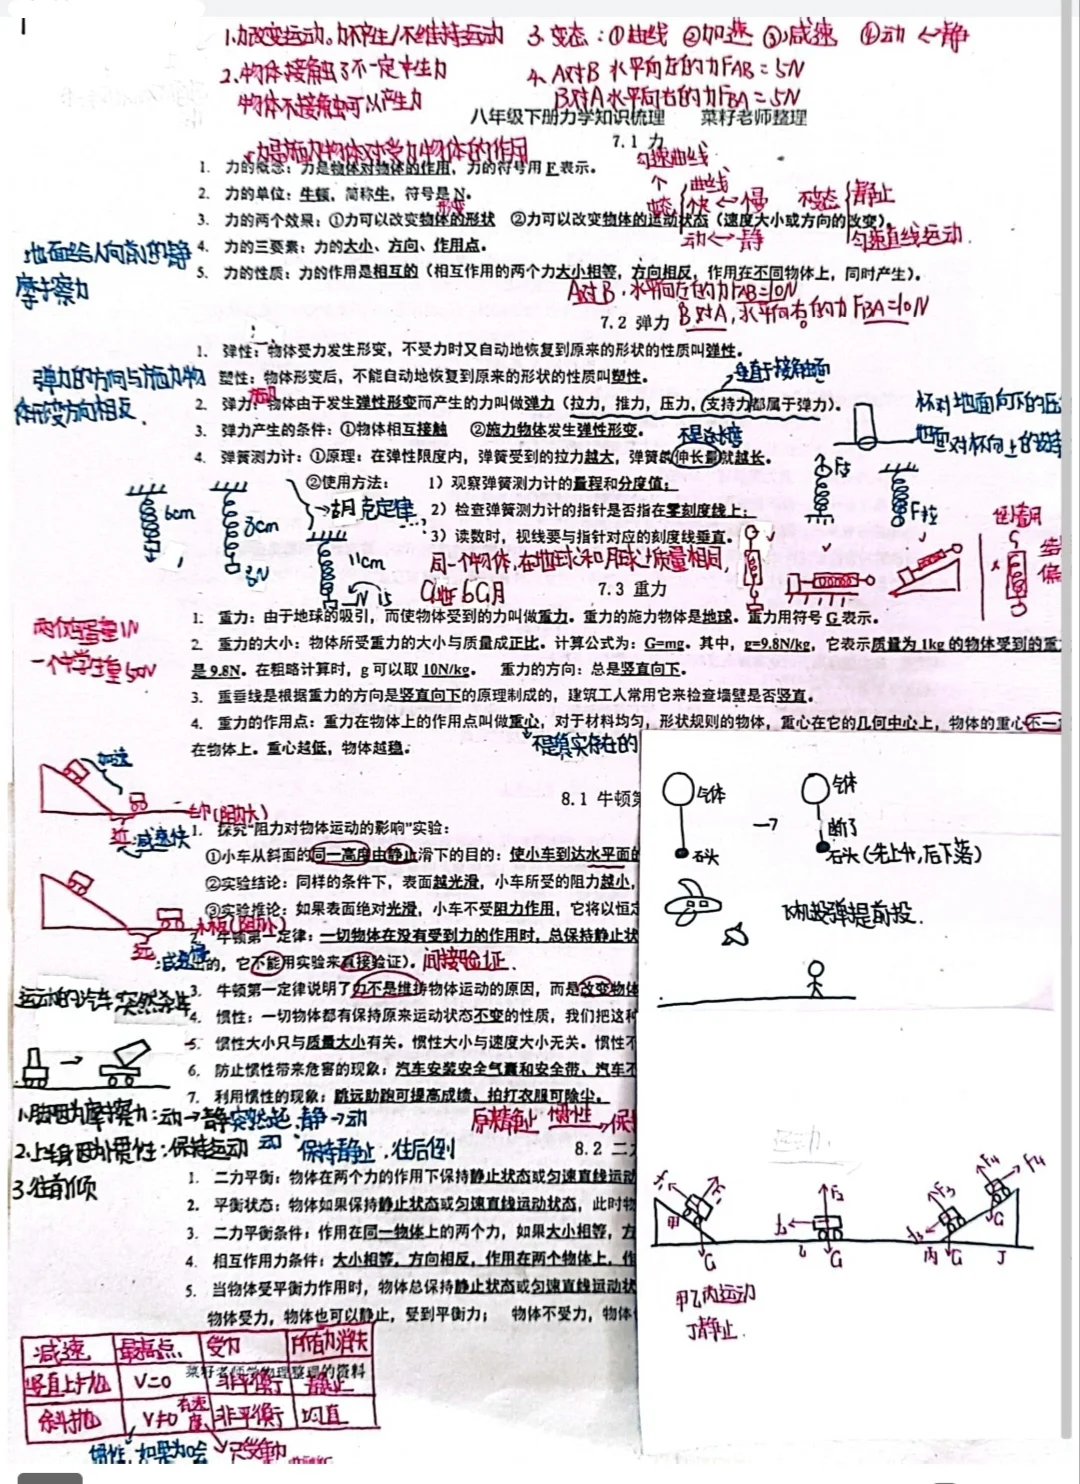 1.力改变运动。力不产生/不维持运动
3.变态:①曲线 ②加速 ③减速 ④动↔静
2.物体接触了不一定产生力
物体不接触也可以产生力
4. A对B 水平向左的力FAB=5N
B对A水平向右的力FBA=5N
八年级下册力学知识梳理 菜籽老师整理
7.1 力
力是施力物体对受力物体的作用
匀速曲线
1. 力的概念:力是物体对物体的作用,力的符号用F表示。
2. 力的单位:牛顿,简称牛,符号是N。
变态 曲线 快↔慢 动↔静
不变态 静止 匀速直线运动
形变
3. 力的两个效果:①力可以改变物体的形状 ②力可以改变物体的运动状态(速度大小或方向的改变)。
4. 力的三要素:力的大小、方向、作用点。
地面给人向前的静
摩擦力
5. 力的性质:力的作用是相互的(相互作用的两个力大小相等,方向相反,作用在不同物体上,同时产生)。
A对B,水平向左的力FAB=10N
B对A,水平向右的力FBA=10N
7.2 弹力
1. 弹性:物体受力发生形变,不受力时又自动地恢复到原来的形状的性质叫弹性。
塑性:物体形变后,不能自动地恢复到原来的形状的性质叫塑性。
弹力的方向与施力物
体形变方向相反
垂直于接触面
施力
2. 弹力:物体由于发生弹性形变而产生的力叫做弹力(拉力,推力,压力,支持力都属于弹力)。
杯对地面向下的压
地面对杯向上的
3. 弹力产生的条件:①物体相互接触 ②施力物体发生弹性形变。
不是总长度
4. 弹簧测力计:①原理:在弹性限度内,弹簧受到的拉力越大,弹簧的伸长量就越长。
②使用方法: 1)观察弹簧测力计的量程和分度值;
胡克定律
2)检查弹簧测力计的指针是否指在零刻度线上;
3)读数时,视线要与指针对应的刻度线垂直。
6cm
8cm
3N
11cm
F拉
同一个物体,在地球和月球,质量相同,
G地=6G月
7.3 重力
1. 重力:由于地球的吸引,而使物体受到的力叫做重力。重力的施力物体是地球。重力用符号G表示。
两个鸡蛋重1N
一个中学生重500N
2. 重力的大小:物体所受重力的大小与质量成正比。计算公式为:G=mg。其中,g=9.8N/kg,它表示质量为1kg的物体受到的重
是9.8N。在粗略计算时,g可以取10N/kg。 重力的方向:总是竖直向下。
3. 重垂线是根据重力的方向是竖直向下的原理制成的,建筑工人常用它来检查墙壁是否竖直。
4. 重力的作用点:重力在物体上的作用点叫做重心,对于材料均匀,形状规则的物体,重心在它的几何中心上,物体的重心不一
在物体上。重心越低,物体越稳。
不是真实存在的
加速
8.1 牛顿第
毛巾(阻力大)
近:减速快
1. 探究“阻力对物体运动的影响”实验:
①小车从斜面的同一高度由静止滑下的目的:使小车到达水平面的
②实验结论:同样的条件下,表面越光滑,小车所受的阻力越小,
③实验推论:如果表面绝对光滑,小车不受阻力作用,它将以恒定
木板(阻力小)
远:减速慢
2. 牛顿第一定律:一切物体在没有受到力的作用时,总保持静止状
的,它不能用实验来直接验证)。间接验证.
3. 牛顿第一定律说明了力不是维持物体运动的原因,而是改变物体
运动的汽车突然刹车
4. 惯性:一切物体都有保持原来运动状态不变的性质,我们把这种
5. 惯性大小只与质量大小有关。惯性大小与速度大小无关。惯性不
6. 防止惯性带来危害的现象:汽车安装安全气囊和安全带、汽车不
7. 利用惯性的现象:跳远助跑可提高成绩、拍打衣服可除尘。
1.脚因为摩擦力:动→静
2.上身因为惯性:保持运动
3.往前倾
突然起 静→动
保持静止,往后倒
原来静止 惯性→保
8.2 二
1. 二力平衡:物体在两个力的作用下保持静止状态或匀速直线运动
2. 平衡状态:物体如果保持静止状态或匀速直线运动状态,此时物
3. 二力平衡条件:作用在同一物体上的两个力,如果大小相等,方
4. 相互作用力条件:大小相等,方向相反,作用在两个物体上,作
5. 当物体受平衡力作用时,物体总保持静止状态或匀速直线运动状
物体受力,物体也可以静止,受到平衡力; 物体不受力,物体
减速 最高点 受力 所有力消失
菜籽老师 物理整理的资料
竖直上抛 V=0 非平衡 静止
斜抛 V≠0 有速度 非平衡 匀直
惯性,如果为0会
只受重力
气体
石头
→
气体
断了
石头(先上升,后下落)
飞机投弹提前投.
甲 G
F2 G
丙 G F3
F4 G 丁
甲乙丙运动
丁静止.